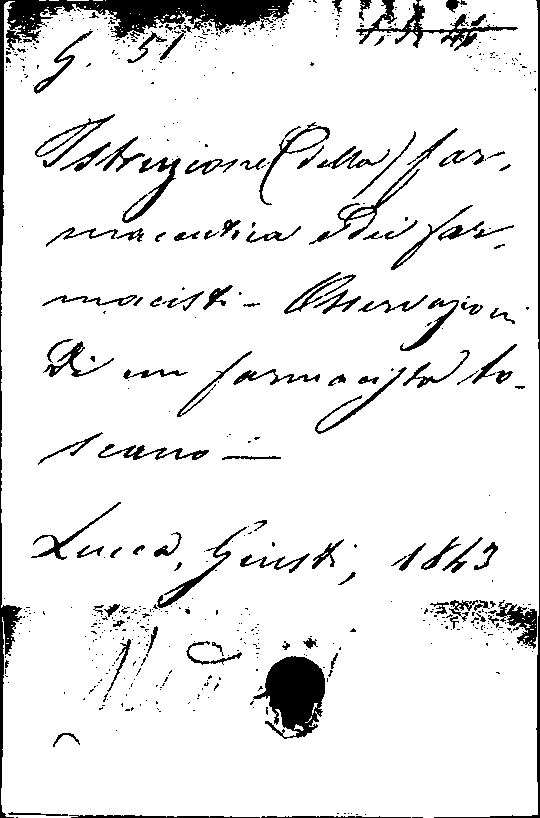 G. 51
Istruzione (della) far-
maceutica e dei far-
macisti - Osservazioni
di un farmacista to-
scano -
Lucca, Giusti, 1843